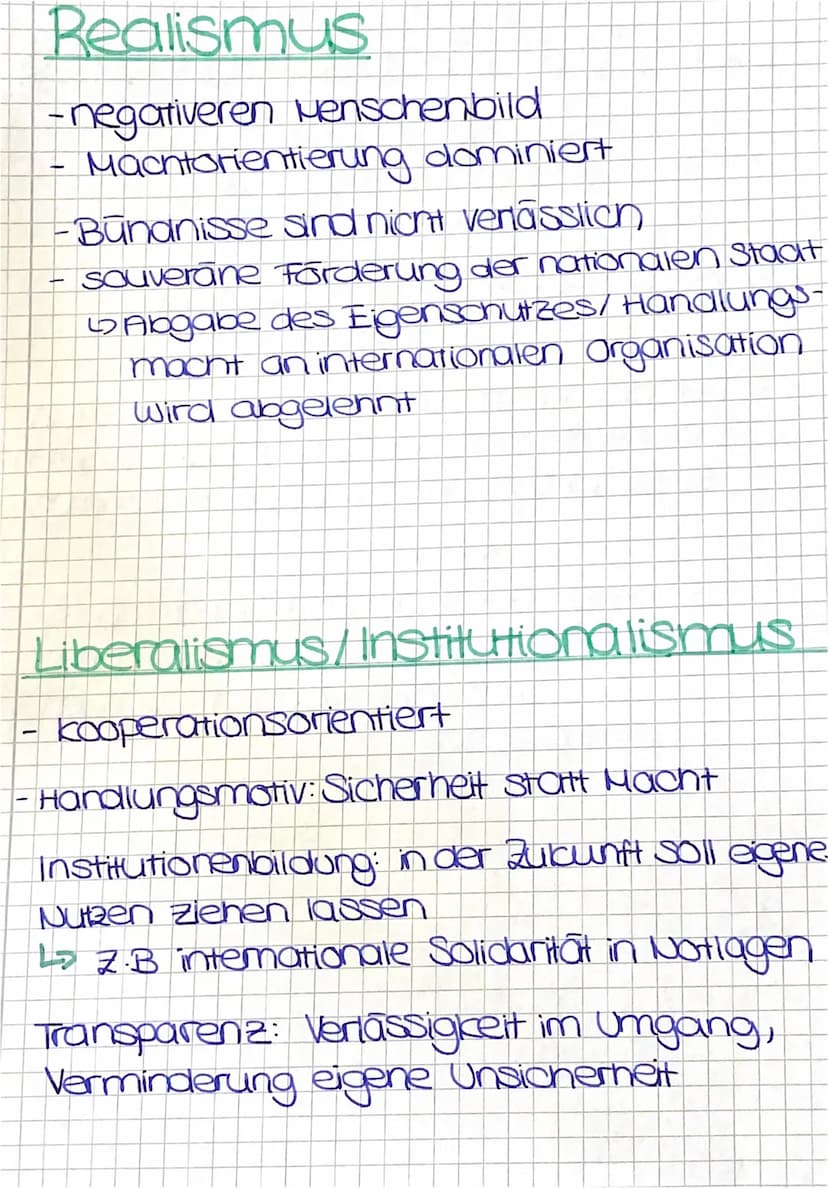 Realismus
- negativeren Menschenbild
- Machtorientierung dominiert
- Bündnisse sind nicht verlässlich
- souveräne Förderung der nationalen Staat
↳ Abgabe des Eigenschutzes/Handlungs-
macht an internationalen Organisation
wird abgelehnt
Liberalismus/Institutionalismus
- kooperationsorientiert
- Handlungsmotiv: Sicherheit statt Macht
Institutionenbildung: in der Zukunft soll eigene
Nutzen ziehen lassen
↳ z.B internationale Solidarität in Notlagen
Transparenz: Verlässigkeit im Umgang,
Verminderung eigene Unsicherheit